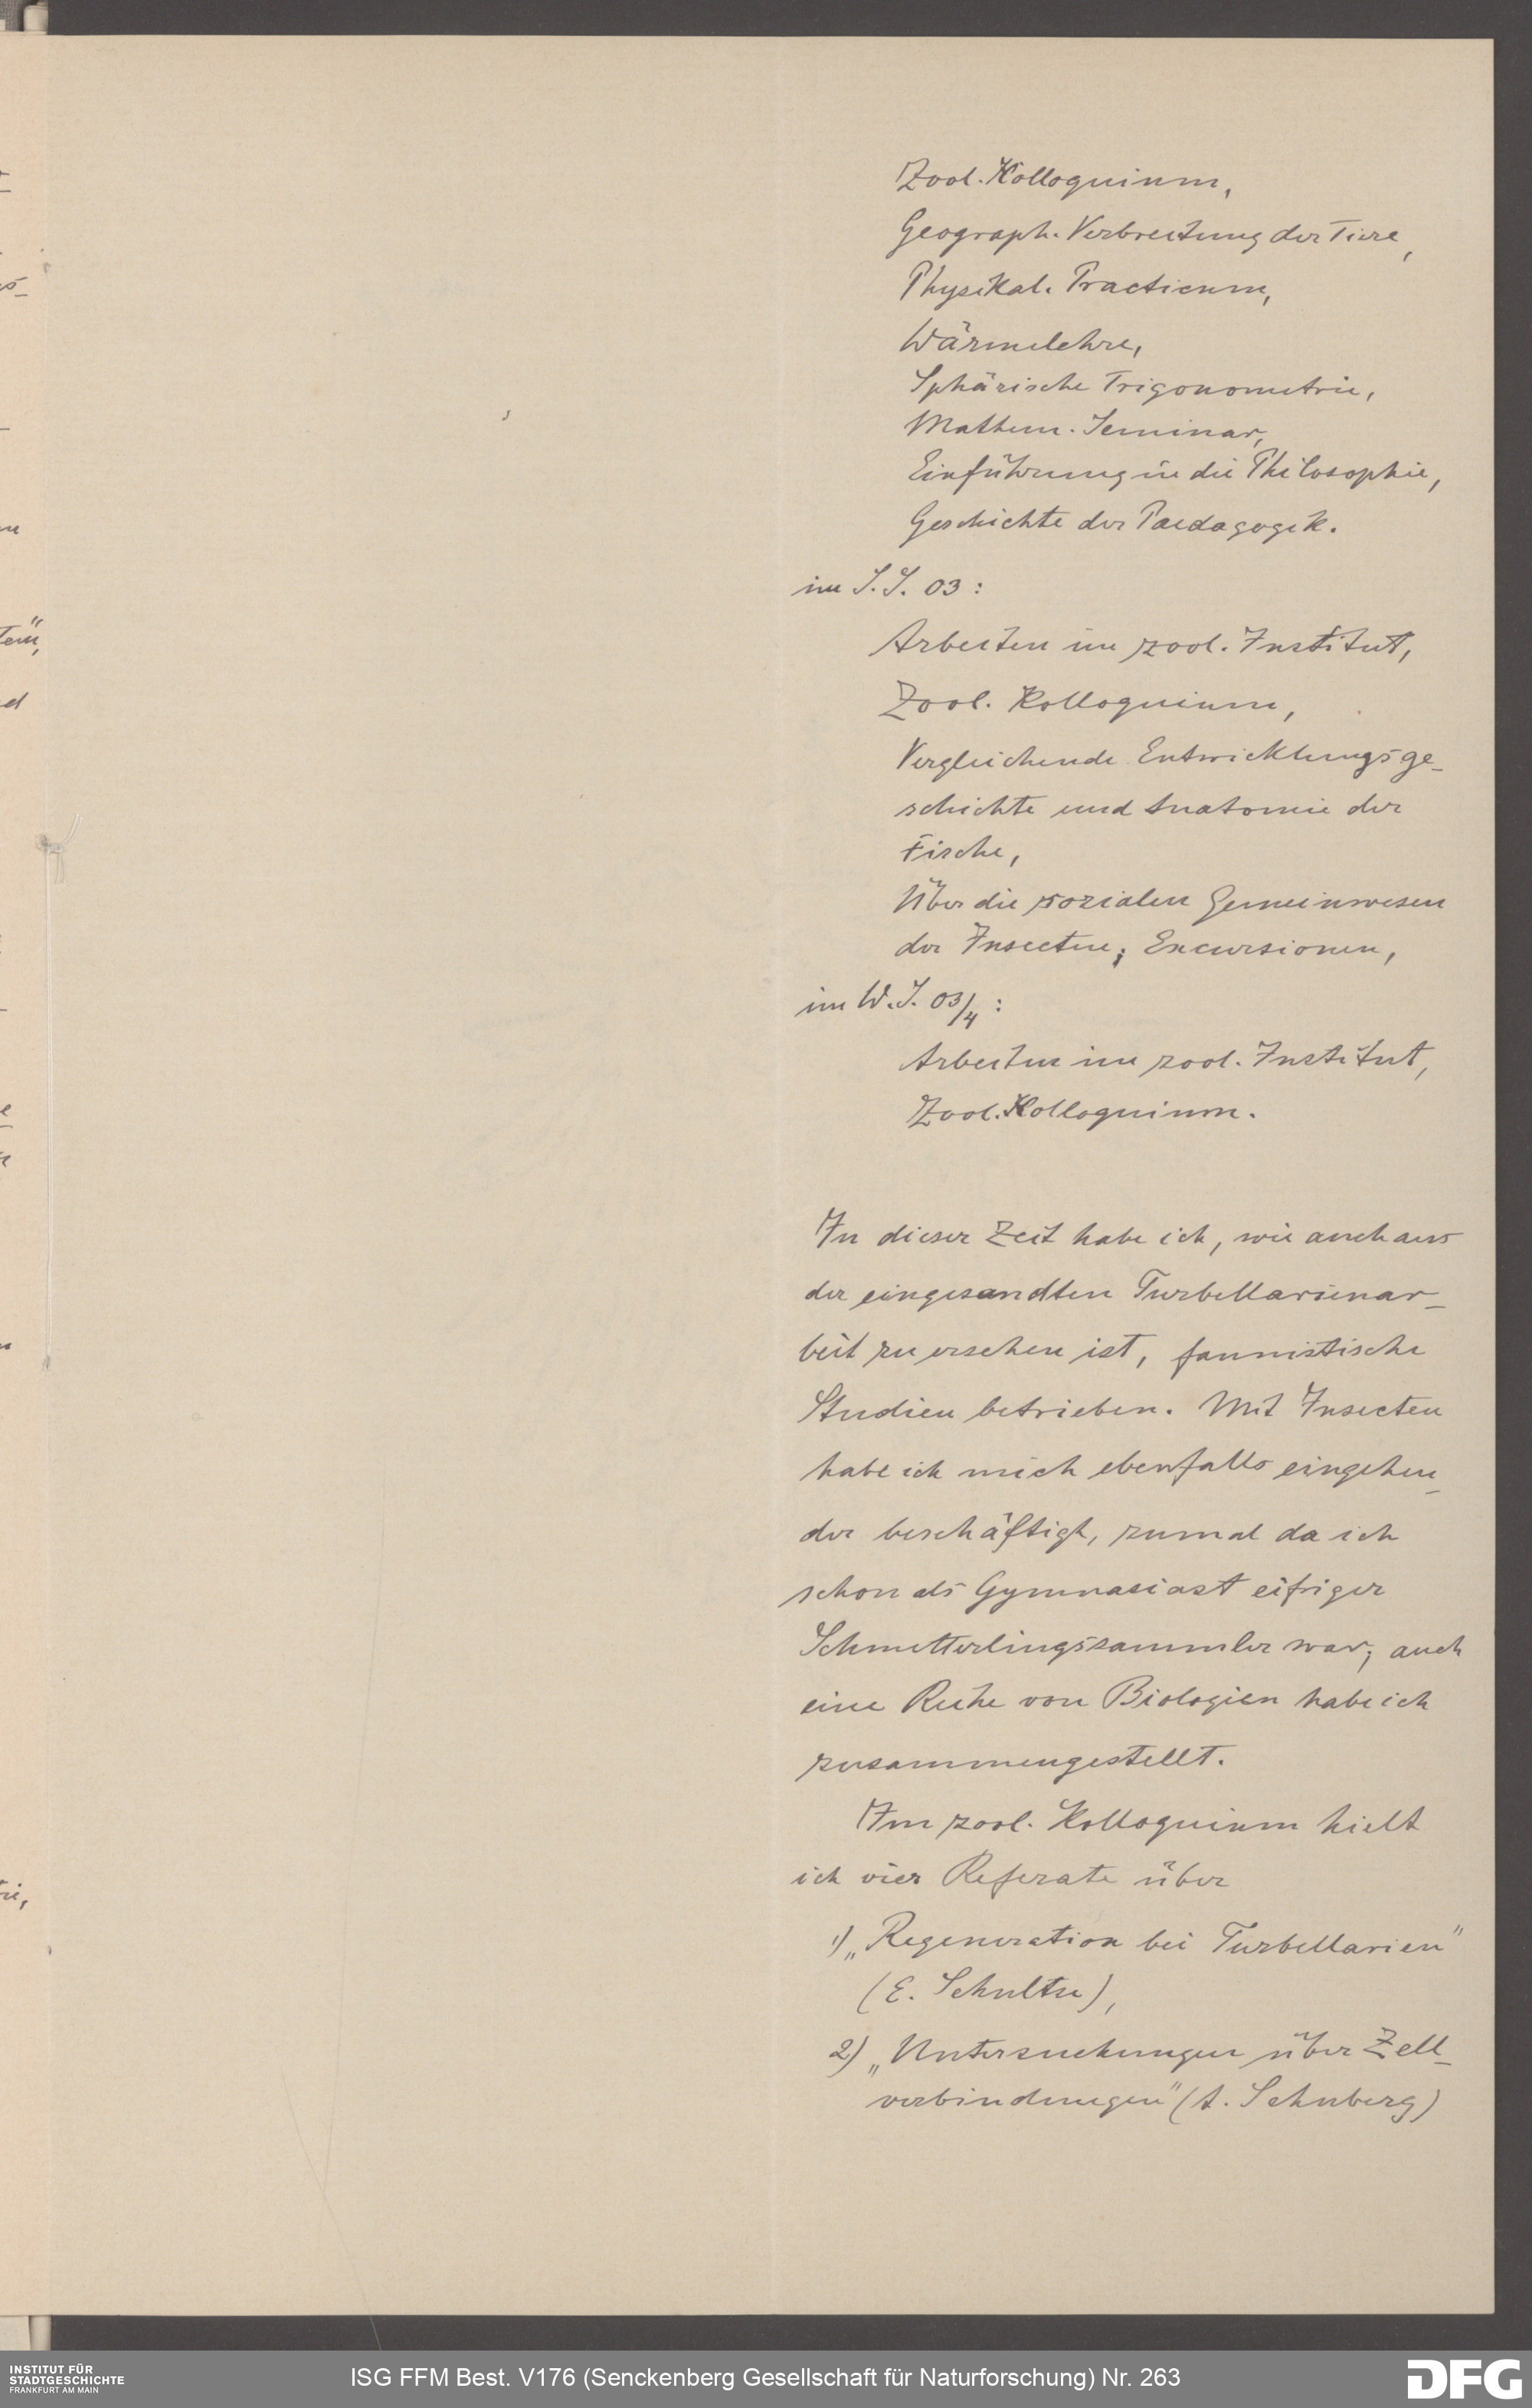 Zool. Kolloquium,
Geograph. Verbreitung der Tiere,
Physikal. Practicum,
Wärmelehre,
Sphärische Trigonometrie,
Mathem. Seminar,
Einführung in die Philosophie,
Geschichte der Paedagogik.
im S. S. 03 :
Arbeiten im zool. Institut,
Zool. Kolloquium,
Vergleichende Entwicklungsge-
schichte und Anatomie der
Fische,
Über die sozialen Gemeinwesen
der Insecten; Excursionen,
im W. S. 03/4 :
Arbeiten im zool. Institut,
Zool. Kolloquium.
In dieser Zeit habe ich, wie auch aus
der eingesandten Turbellarienar-
beit zu ersehen ist, faunistische
Studien betrieben. Mit Insecten
habe ich mich ebenfalls eingehen-
der beschäftigt, zumal da ich
schon als Gymnasiast eifriger
Schmetterlingssammler war; auch
eine Reihe von Biologien habe ich
zusammengestellt.
Im zool. Kolloquium hielt
ich vier Referate über
1) „Regeneration bei Turbellarien"
(E. Schultze),
2) „Untersuchungen über Zell-
verbindungen" (A. Schuberg)
INSTITUT FÜR
STADTGESCHICHTE
FRANKFURT AM MAIN
ISG FFM Best. V176 (Senckenberg Gesellschaft für Naturforschung) Nr. 263
DFG